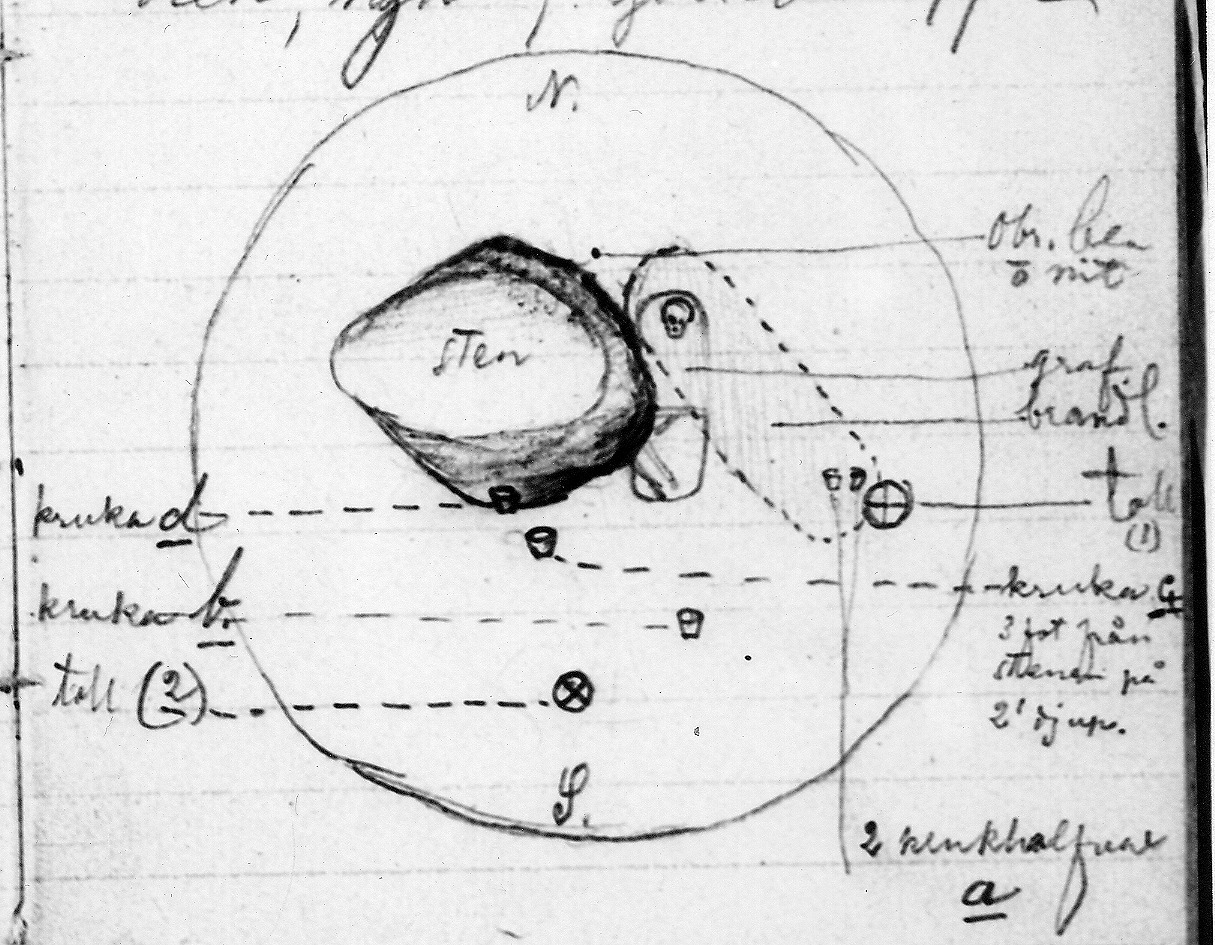 N.
obr. ben
o nit
sten
graf
brandl.
kruka d
tall
(1)
kruka b
kruka c
3 fot från
stenen på
2' djup.
tall (2)
S.
2 krukhalfvor
a